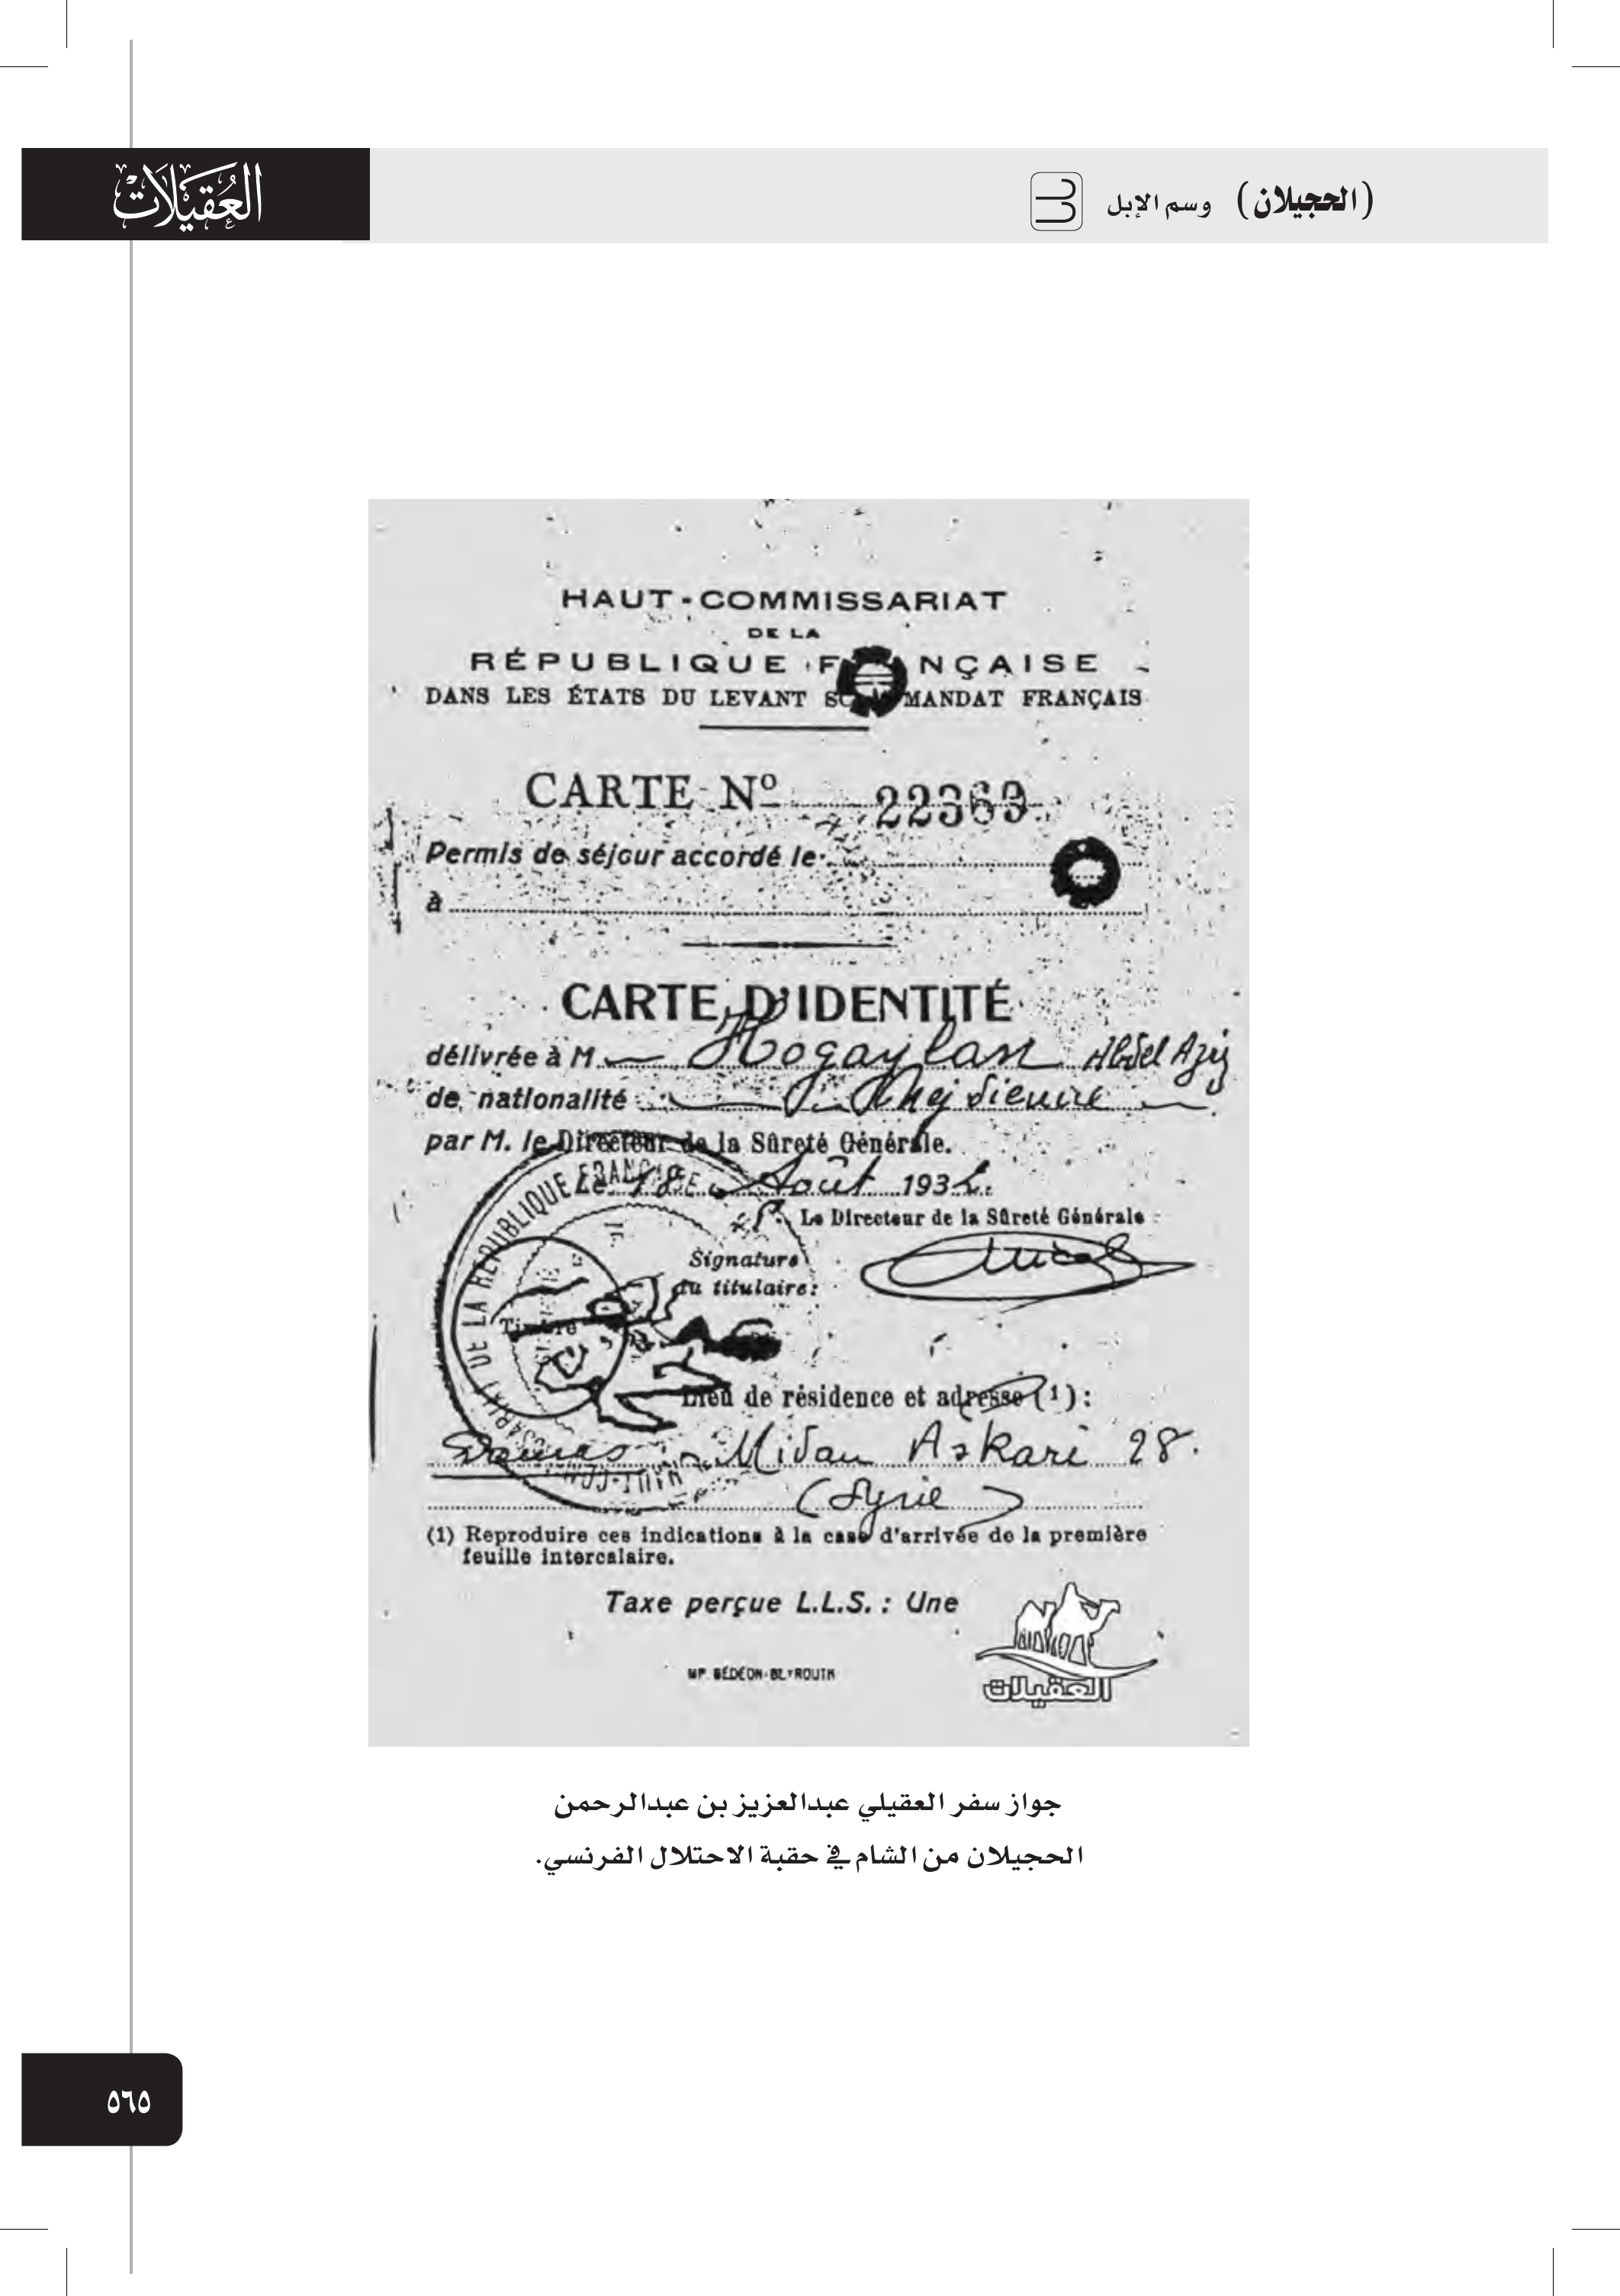 (الحجيلان) وسم الإبل
العُقَيْلَاتْ
HAUT-COMMISSARIAT
DE LA
RÉPUBLIQUE F NÇAISE
DANS LES ÉTATS DU LEVANT S MANDAT FRANÇAIS
CARTE Nº 22369
Permis de séjour accordé le
à
CARTE D'IDENTITÉ
délivrée à M Hogaylan Abdel Aziz
de nationalité
par M. le Directeur de la Sûreté Générale.
Le 18 Août 193
Le Directeur de la Sûreté Générale
Signature
du titulaire:
Timbre
DE LA RÉPUBLIQUE FRANÇAISE
Lieu de résidence et adresse (1):
Damas Midan Askari 28.
(Syrie)
(1) Reproduire ces indications à la case d'arrivée de la première
feuille intercalaire.
Taxe perçue L.L.S. : Une
العقيلات
جواز سفر العقيلي عبدالعزيز بن عبدالرحمن
الحجيلان من الشام في حقبة الاحتلال الفرنسي.
٥٦٥